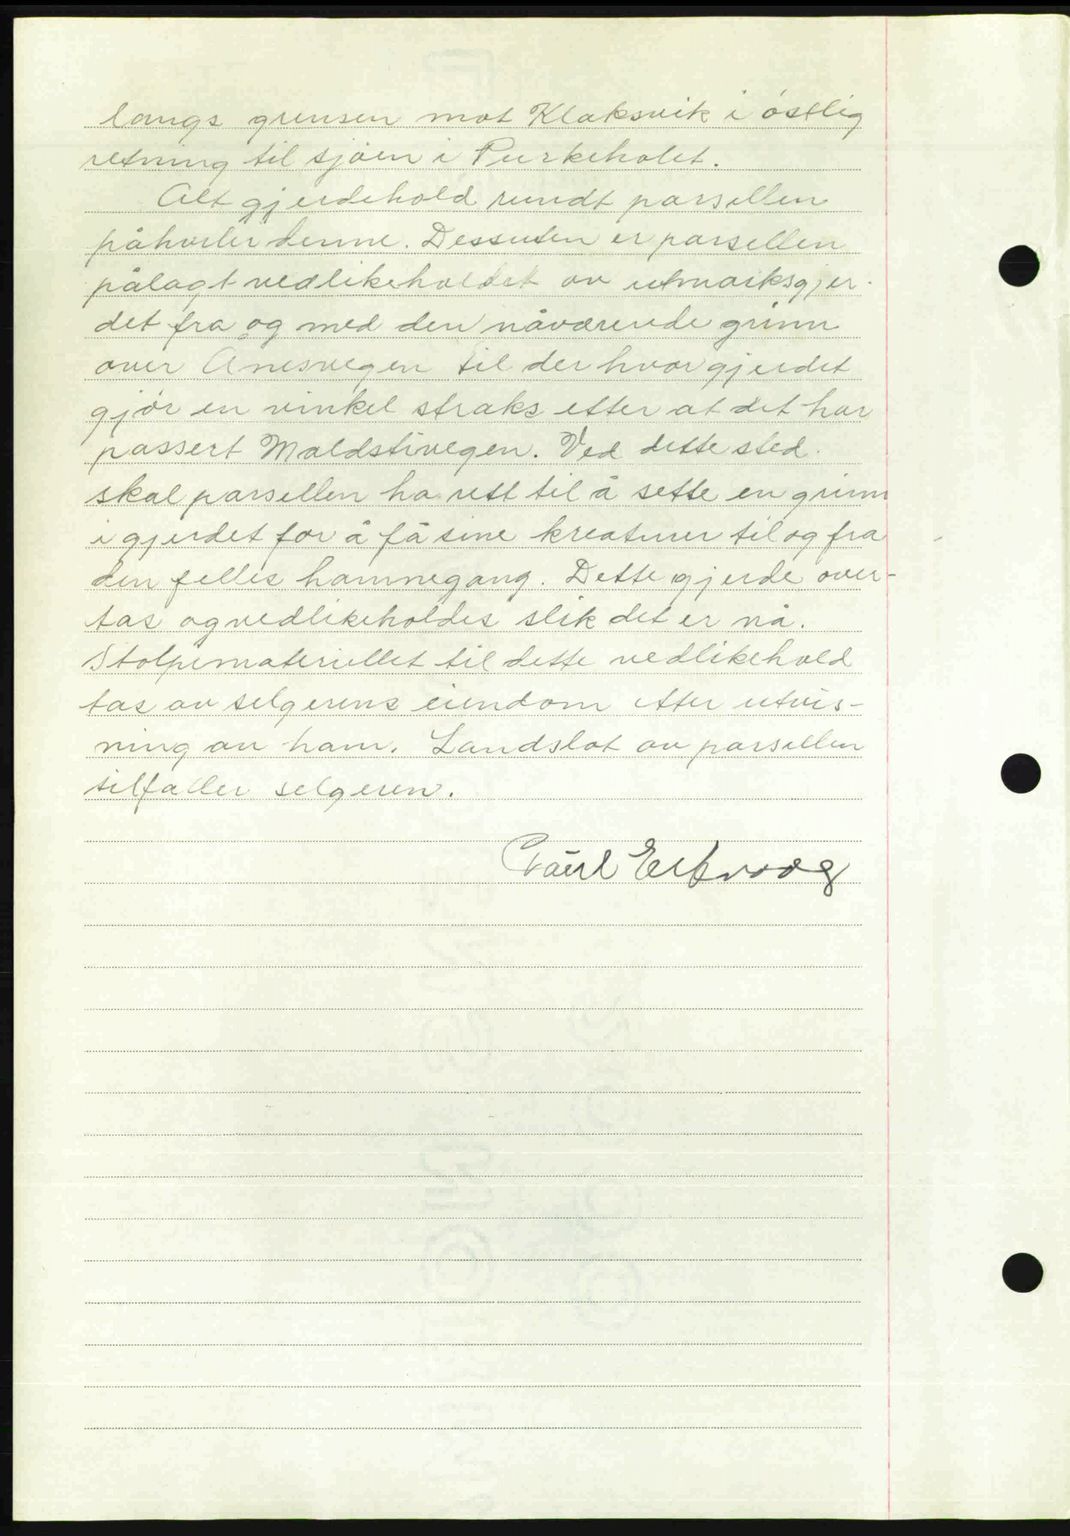 langs grensen mot Klaksvik i østlig
retning til sjøen i Purkeholet.
Alt gjerdehold rundt parsellen
påhviler denne. Dessuten er parsellen
pålagt vedlikeholdet av utmarksgjer-
det fra og med den nåværende grinn
over Ånesvegen til der hvor gjerdet
gjør en vinkel straks etter at det har
passert Maldstivegen. Ved dette sted
skal parsellen ha rett til å sette en grinn
i gjerdet for å få sine kreaturer til og fra
den felles hamnegang. Dette gjerde over-
tas og vedlikeholdes slik det er nå.
Stolpemateriellet til dette vedlikehold
tas av selgerens eiendom etter utvis-
ning av ham. Landslot av parsellen
tilfaller selgeren.